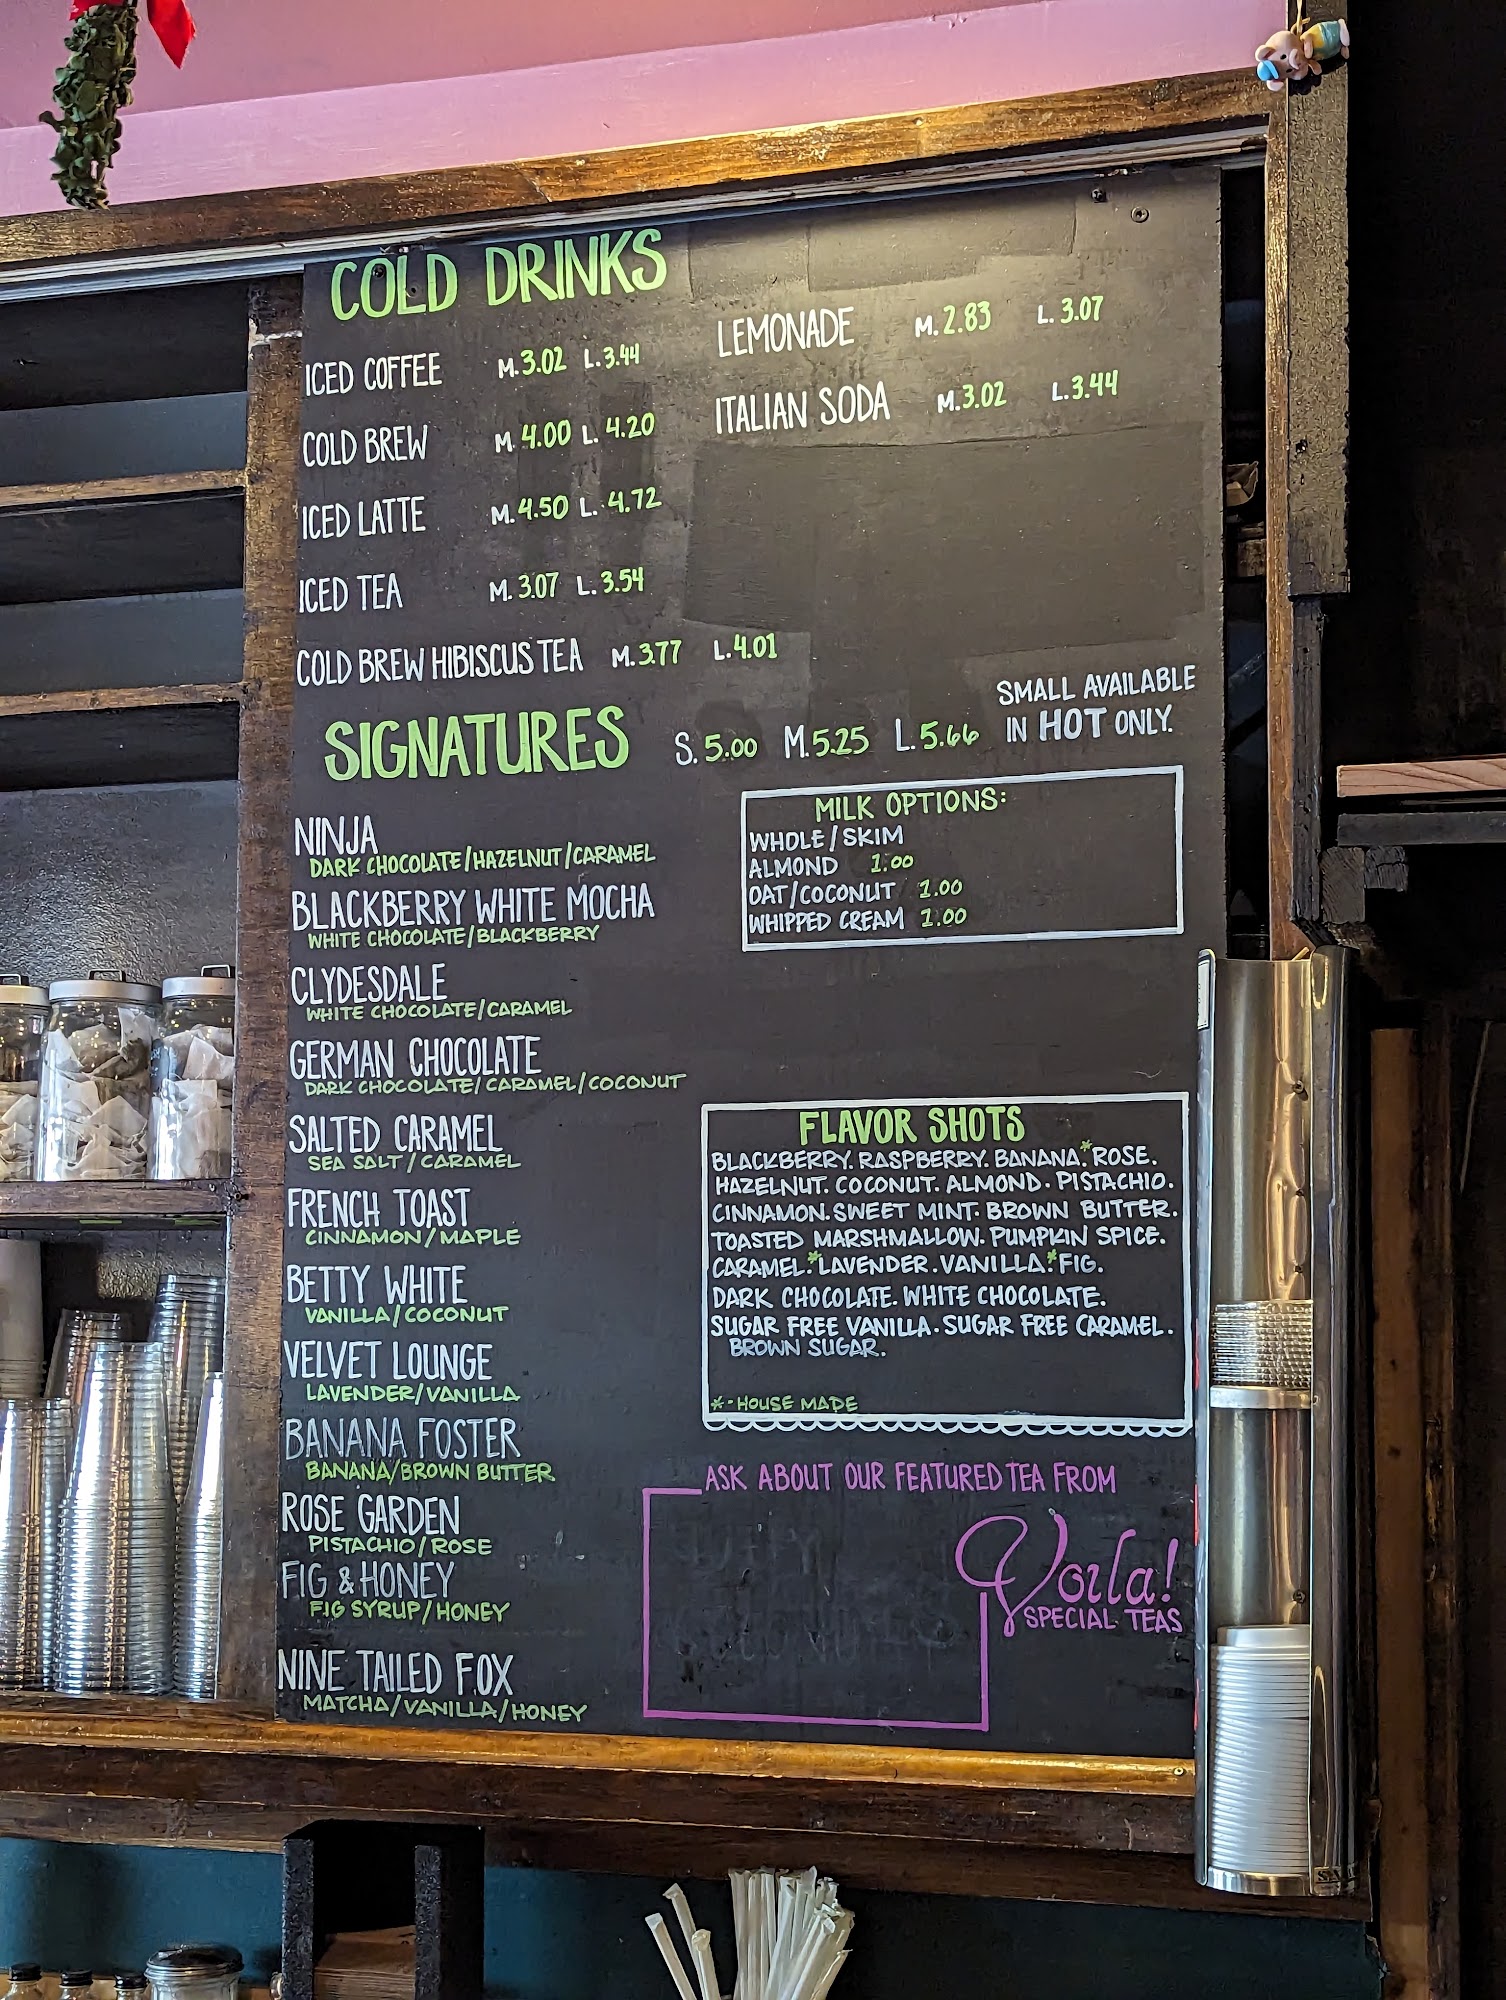 COLD DRINKS
ICED COFFEE M.3.02 L.3.44
COLD BREW M.4.00 L.4.20
ICED LATTE M.4.50 L.4.72
ICED TEA M.3.07 L.3.54
COLD BREW HIBISCUS TEA M.3.77 L.4.01
LEMONADE M.2.83 L.3.07
ITALIAN SODA M.3.02 L.3.44
SIGNATURES S.5.00 M.5.25 L.5.66
SMALL AVAILABLE
IN HOT ONLY.
NINJA
DARK CHOCOLATE/HAZELNUT/CARAMEL
BLACKBERRY WHITE MOCHA
WHITE CHOCOLATE/BLACKBERRY
CLYDESDALE
WHITE CHOCOLATE/CARAMEL
GERMAN CHOCOLATE
DARK CHOCOLATE/CARAMEL/COCONUT
SALTED CARAMEL
SEA SALT/CARAMEL
FRENCH TOAST
CINNAMON/MAPLE
BETTY WHITE
VANILLA/COCONUT
VELVET LOUNGE
LAVENDER/VANILLA
BANANA FOSTER
BANANA/BROWN BUTTER
ROSE GARDEN
PISTACHIO/ROSE
FIG & HONEY
FIG SYRUP/HONEY
NINE TAILED FOX
MATCHA/VANILLA/HONEY
MILK OPTIONS:
WHOLE/SKIM
ALMOND 1.00
OAT/COCONUT 1.00
WHIPPED CREAM 1.00
FLAVOR SHOTS
BLACKBERRY. RASPBERRY. BANANA.* ROSE.
HAZELNUT. COCONUT. ALMOND. PISTACHIO.
CINNAMON. SWEET MINT. BROWN BUTTER.
TOASTED MARSHMALLOW. PUMPKIN SPICE.
CARAMEL.* LAVENDER. VANILLA.* FIG.
DARK CHOCOLATE. WHITE CHOCOLATE.
SUGAR FREE VANILLA. SUGAR FREE CARAMEL.
BROWN SUGAR.
*-HOUSE MADE
ASK ABOUT OUR FEATURED TEA FROM
Voila!
SPECIAL TEAS